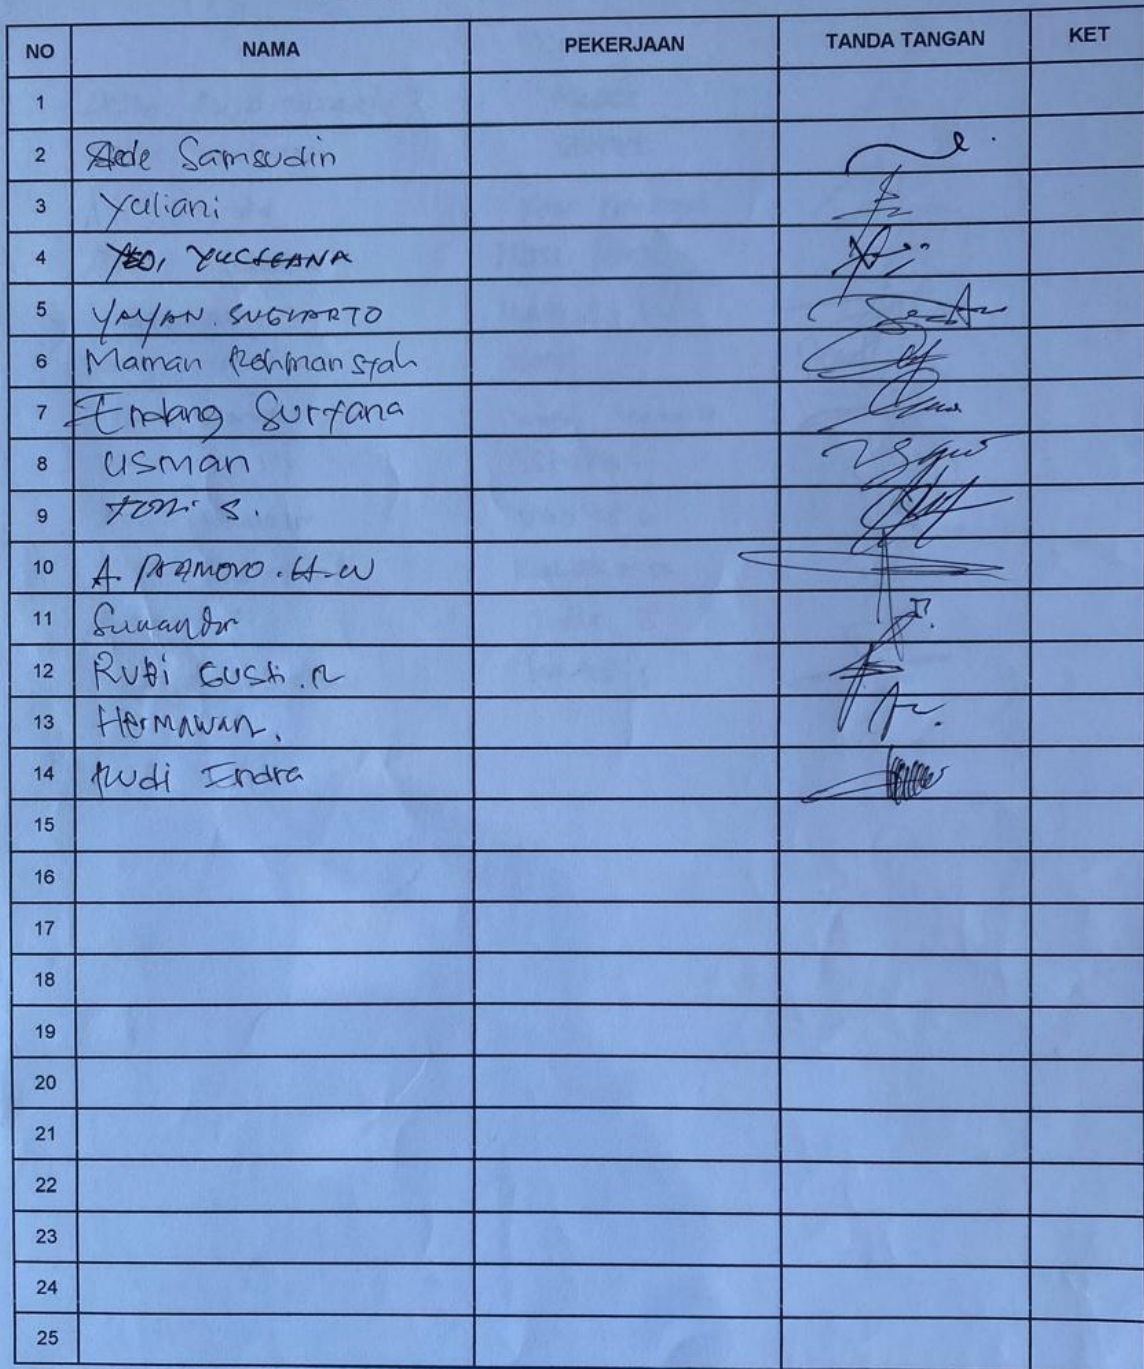 NO NAMA PEKERJAAN TANDA TANGAN KET
1
2 Ade Samsudin
3 Yuliani
4 YUSLEANA
5 YAYAN. SUGIARTO
6 Maman Rohmansyah
7 Endang Suryana
8 USMAN
9 Toni S.
10 A. PRAMONO . H. W
11 Sunandar
12 RUDI GUSti . R
13 HerMAWAN.
14 Rudi Indra
15
16
17
18
19
20
21
22
23
24
25